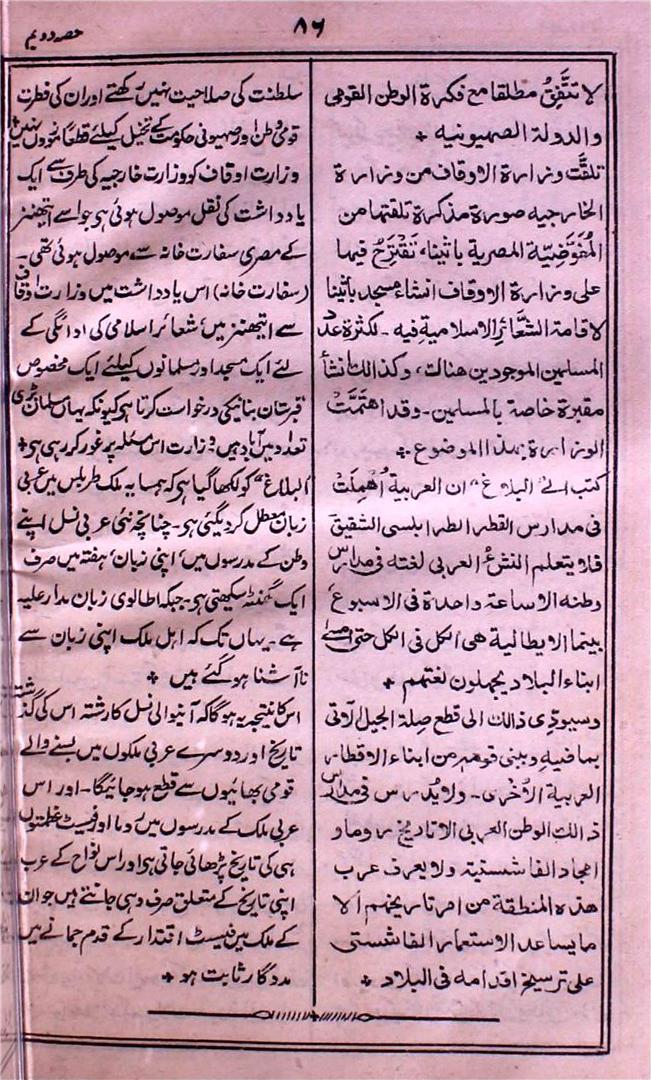 حصہ دویم
۸۶
لا تتَّفِقُ مطلقا مع فكرة الوطن القومى
والدولة الصهيونيه +
تلقَّت وزارة الاوقاف من وزارة
الخارجيه صورة مذكرة تلقتها من
المُفَوَّضِيَّة المصرية باثينا، تَقْتَرِحُ فيها
على وزارة الاوقاف انشاء مسجد باثينا
لاقامة الشَّعائرِ الاسلامية فيه - لكثرة عدد
المسلمين الموجودين هنالك، وكذالك انشأ
مقبرة خاصة بالمسلمين - وقد اهتَمَّتْ
الوزارة بهذا الموضوع +
كتب الى "البلاغ" ان العربية اُهْمِلَتْ
فى مدارس القطر الطرابلسى الشقيق
فلا يتعلم النشئ العربى لغته فى مدارس
وطنه الا ساعة واحدة فى الاسبوع
بينما الايطالية هى الكل فى الكل حتى امسى
ابناء البلاد يجهلون لغتهم +
وسيودِّى ذالك الى قطع صلة الجيل الآتى
بماضيه وبينى قومه من ابناء الاقطار
العربية الأخرى - ولا يُدرس فى مدارس
ذالك الوطن العربى الا تاريخ روما و
امجاد الفاشستية ولا يعرف عرب
هذه المنطقة من امر تاريخهم الا
ما يساعد الاستعمار الفاشستى
على ترسيخ اقدامه فى البلاد +
سلطنت کی صلاحیت نہیں رکھتے اور ان کی فطرت
قومی وطن اور صہیونی حکومت کے تخیل کیلئے قطعاً موزوں نہیں +
وزارت اوقاف کو وزارت خارجیہ کی طرف سے ایک
یادداشت کی نقل موصول ہوئی ہی جو اسے ایتھنز
کے مصری سفارت خانہ سے، موصول ہوئی تھی -
(سفارت خانہ) اس یادداشت میں وزارت اوقاف
سے ایتھنز میں، شعائر اسلامی کی ادائگی کے
لئے ایک مسجد اور مسلمانوں کیلئے ایک مخصوص
قبرستان بنانیکی درخواست کرتا ہی کیونکہ یہاں مسلمان بڑی
تعداد میں آباد ہیں، وزارت اس مسئلہ پر غور کر رہی ہی +
"البلاغ" کو لکھا گیا ہی کہ ہمسایہ ملک طرابلس میں عربی
زبان معطل کر دیگئی ہی - چنانچہ نئی عربی نسل اپنے
وطن کے مدرسوں میں، اپنی زبان، ہفتہ میں صرف
ایک گھنٹہ سیکھتی ہی - جبکہ اطالوی زبان مدار علیہ
ہے - یہاں تک کہ اہل ملک اپنی زبان سے
نا آشنا ہو گئے ہیں +
اس کا نتیجہ یہ ہوگا کہ آنیوالی نسل کا رشتہ اس کی گذشتہ
تاریخ اور دوسرے عربی ملکوں میں بسنے والے
قومی بھائیوں سے قطع ہو جائیگا - اور اس
عربی ملک کے مدرسوں میں، روما اور فیسٹ عظمتوں
ہی کی تاریخ پڑھائی جاتی ہی اور اس نواح کے عرب
اپنی تاریخ کے متعلق صرف وہی جانتے ہیں جو ان
کے ملک میں فیسٹ اقتدار کے قدم جمانے میں
مددگار ثابت ہو +